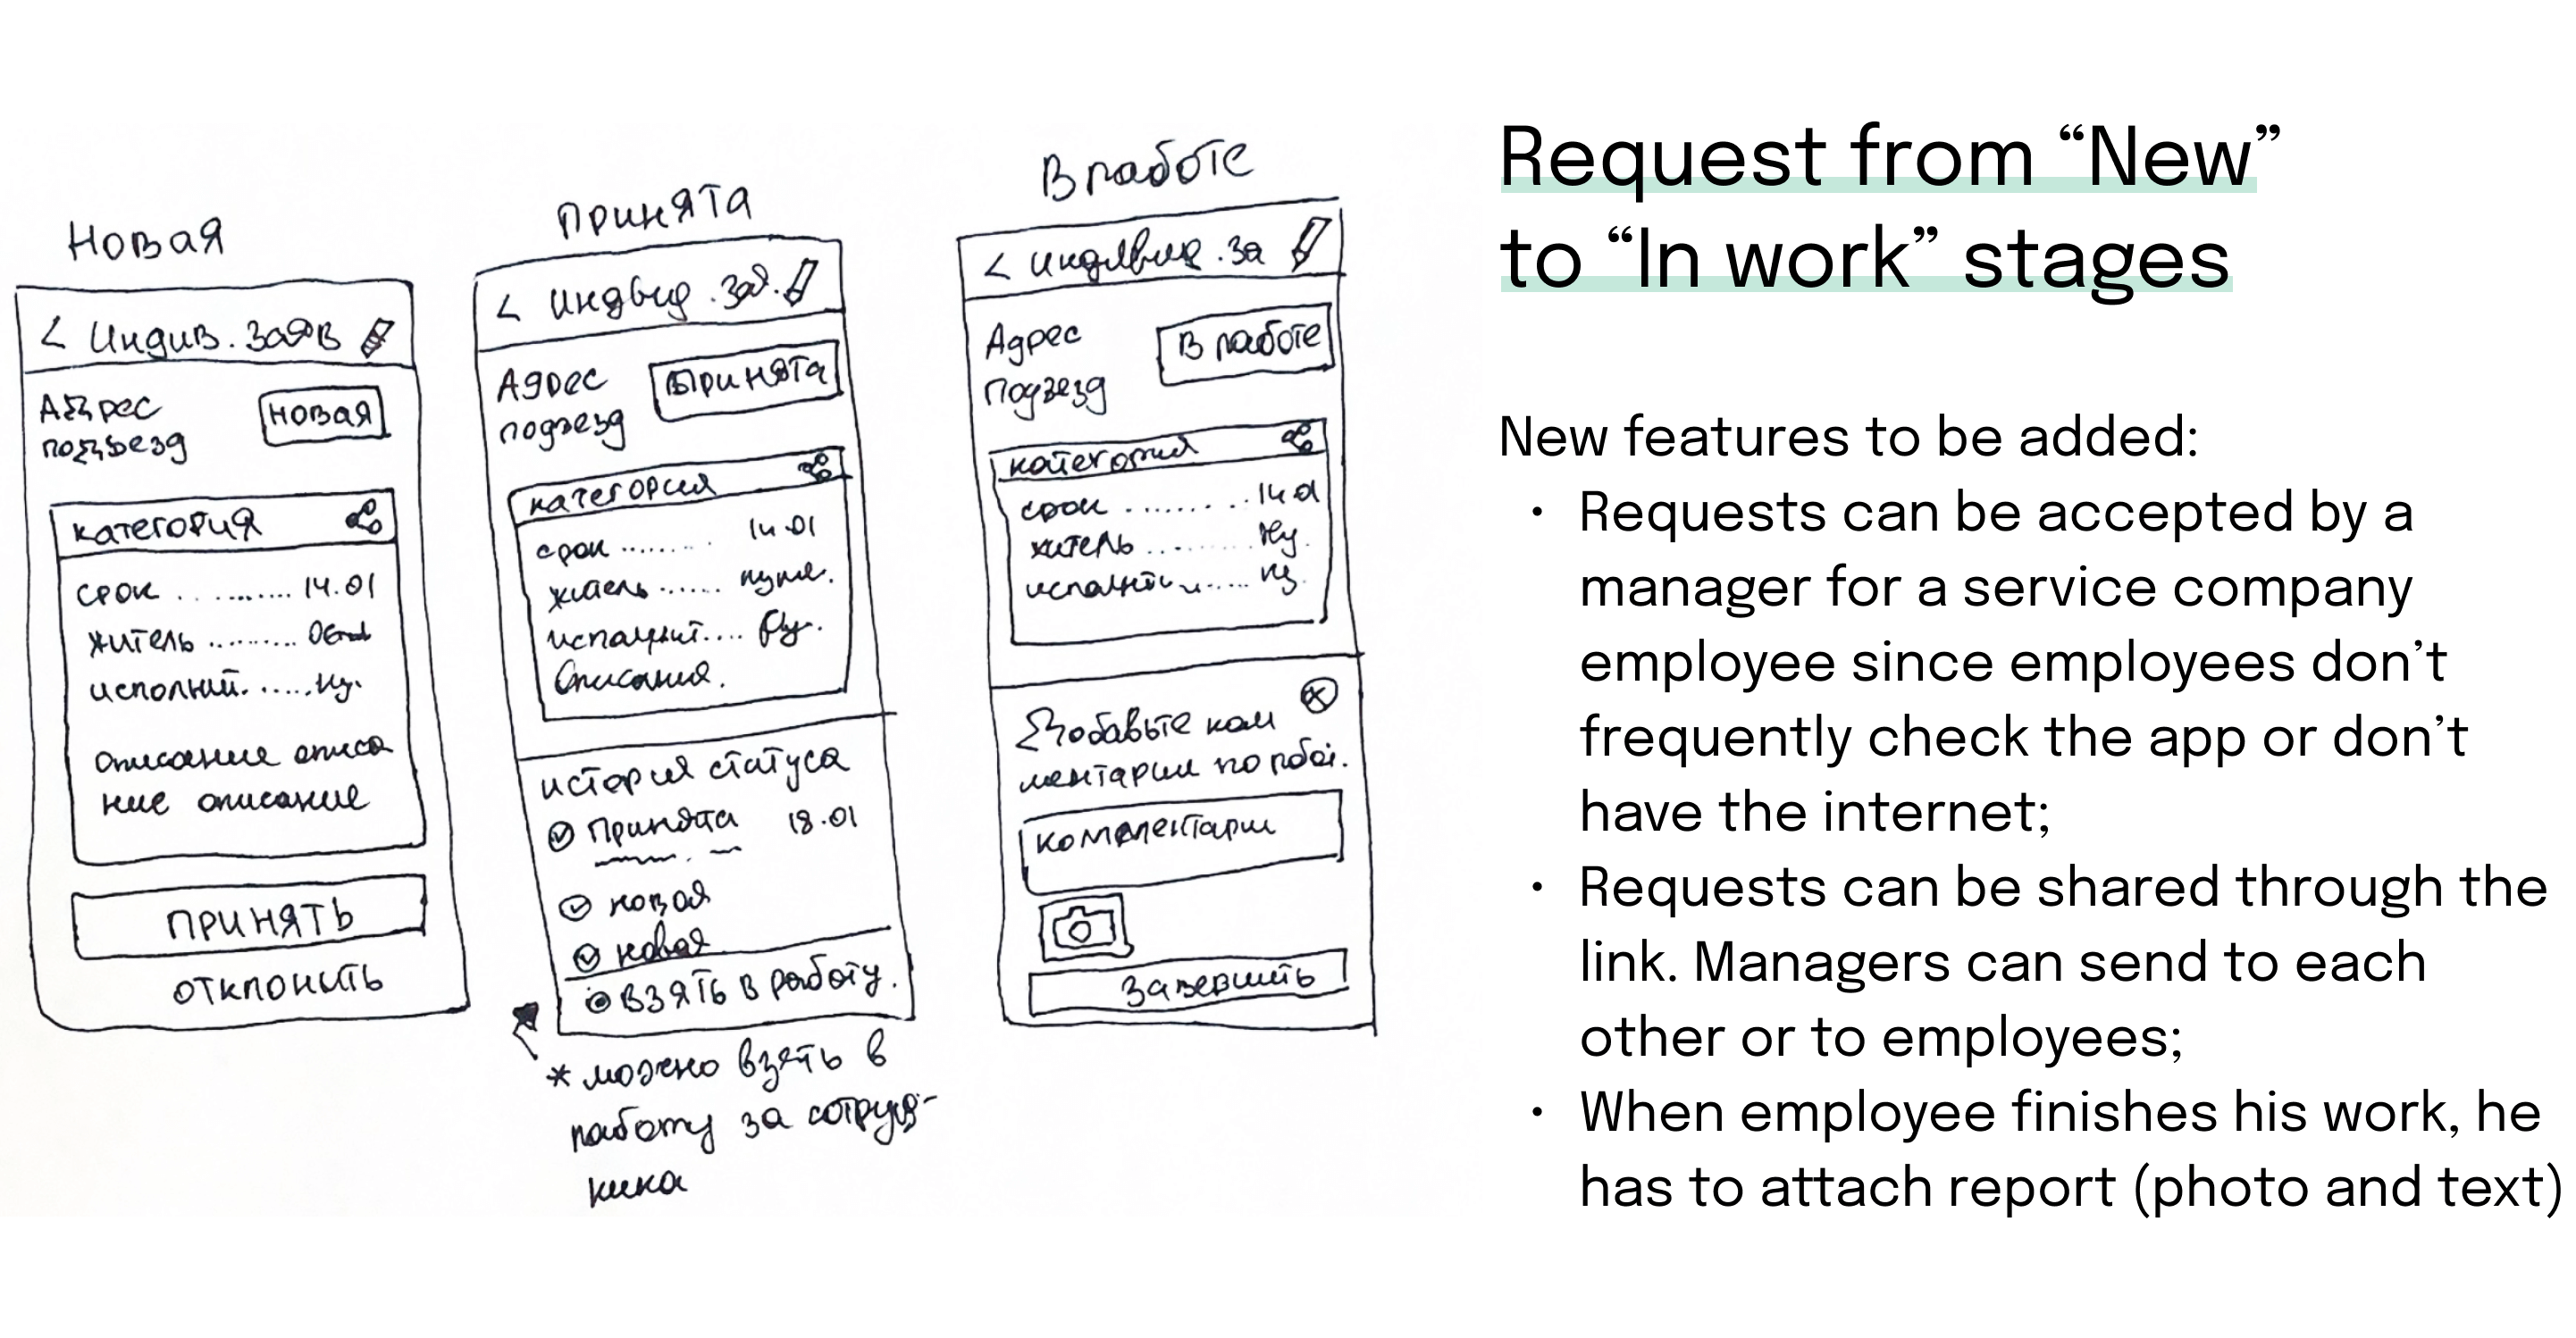 Новая
< Индив. Заяв
Адрес
подъезд
новая
категория
срок ........... 14.01
житель .........
исполнит. ......
описание описа
ние описание
ПРИНЯТЬ
ОТКЛОНИТЬ
Принята
< Индвид. Зая.
Адрес
подъезд
Принята
категория
срок ........ 14.01
житель ......
исполнит....
Описания.
история статуса
Принята 18.01
новая
новая
ВЗЯТЬ в работу.
* можно взять в
работу за сотруд-
ника
В работе
< индивид. за
Адрес
подъезд
В работе
категория
срок .........
житель .........
Добавьте ком
ментарии по
комментарии
завершить
Request from “New”
to “In work” stages
New features to be added:
• Requests can be accepted by a
manager for a service company
employee since employees don’t
frequently check the app or don’t
have the internet;
• Requests can be shared through the
link. Managers can send to each
other or to employees;
• When employee finishes his work, he
has to attach report (photo and text)